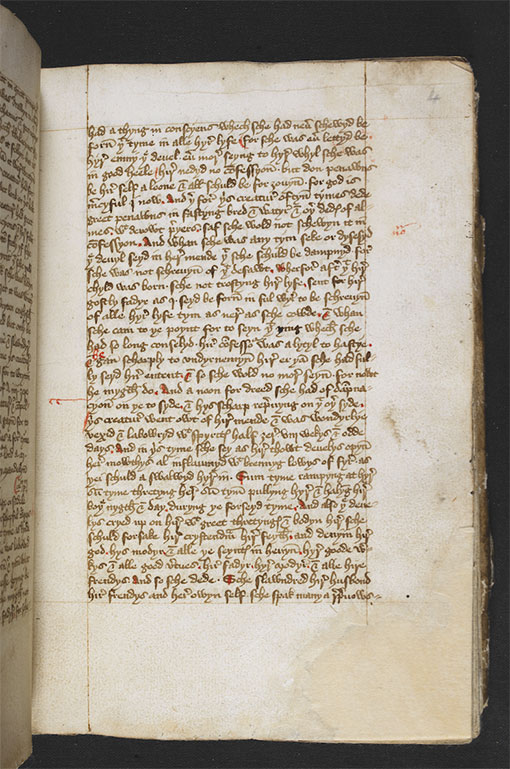 4
had a thyng in conscyens whech sche had neuer schewyd be
forn þt tyme in alle hyr lyfe. For sche was euer lettyd be
hyr enmy þe deuel. euermor seyng to hyr whyl sche was
in good heele hir nedyd no confessyon. but don penawns
be hir self a loone & all schuld be forȝouyn. for god is
mercyful j now. And þerfor þis creatur oftyn tymes dede
greet penawns in fastyng bred & watyr & oþer dedys of al
mes wt deuowt preyers saf sche wold not schewyn it in
confessyon. And whan sche was any tym seke or dysesyd
þe deuyl seyd in her mende þt sche schuld be dampnyd for
sche was not schreuyn of þt defawt. Wherfor aftyr þt hir
chyld was born sche not trostyng hir lyfe. sent for hir
gostly fadyr as j seyd be forn in ful wyl to be schreuyn
of alle hir lyfe tym as ner as sche cowde. & whan
sche cam to þe poynt for to seyn þt þing whech sche
had so long conselyd. hir confessowr was a lytyl to hastye
& gan scharply to vndyrnemyn hir er þan sche had ful
ly seyd hir entent. & so sche wold no mor seyn for nowt
he mygth do. And a noon for dreed sche had of dampna
cyon on þe to syde. & hys scharp repreuyng on þt oþer syde
þis creatur went owt of hir mende & was wondyrlye
vexid & labowryd wt spyritys half ȝer viij wekys & odde
days. And in þis tyme sche sey as hir thowt deuelys opyn
her mowthys al inflaumyd wt brennyng lowys of fyr as
þei schuld a swalwyd hyr in. Sum tyme rampyng at hyr
sum tyme thretyng her. sum tym pullyng hyr & halyng hir
boþe nygth & day duryng þe forseyd tyme. And also þe deue
lys cryed up on hir wt greet thretyngys & bodyn hir sche
schuld forsake hir crystendam hir feyth. and denyin hir
god. hys modyr & alle þe seyntys in heuyn. hyr goode we
kys & alle good vertues. hir fadyr. hyr modyr. & alle hire
frendys and so sche dede. Sche slawndred hir husbond
hir frendys and her owyn self. sche spak many a repreuows